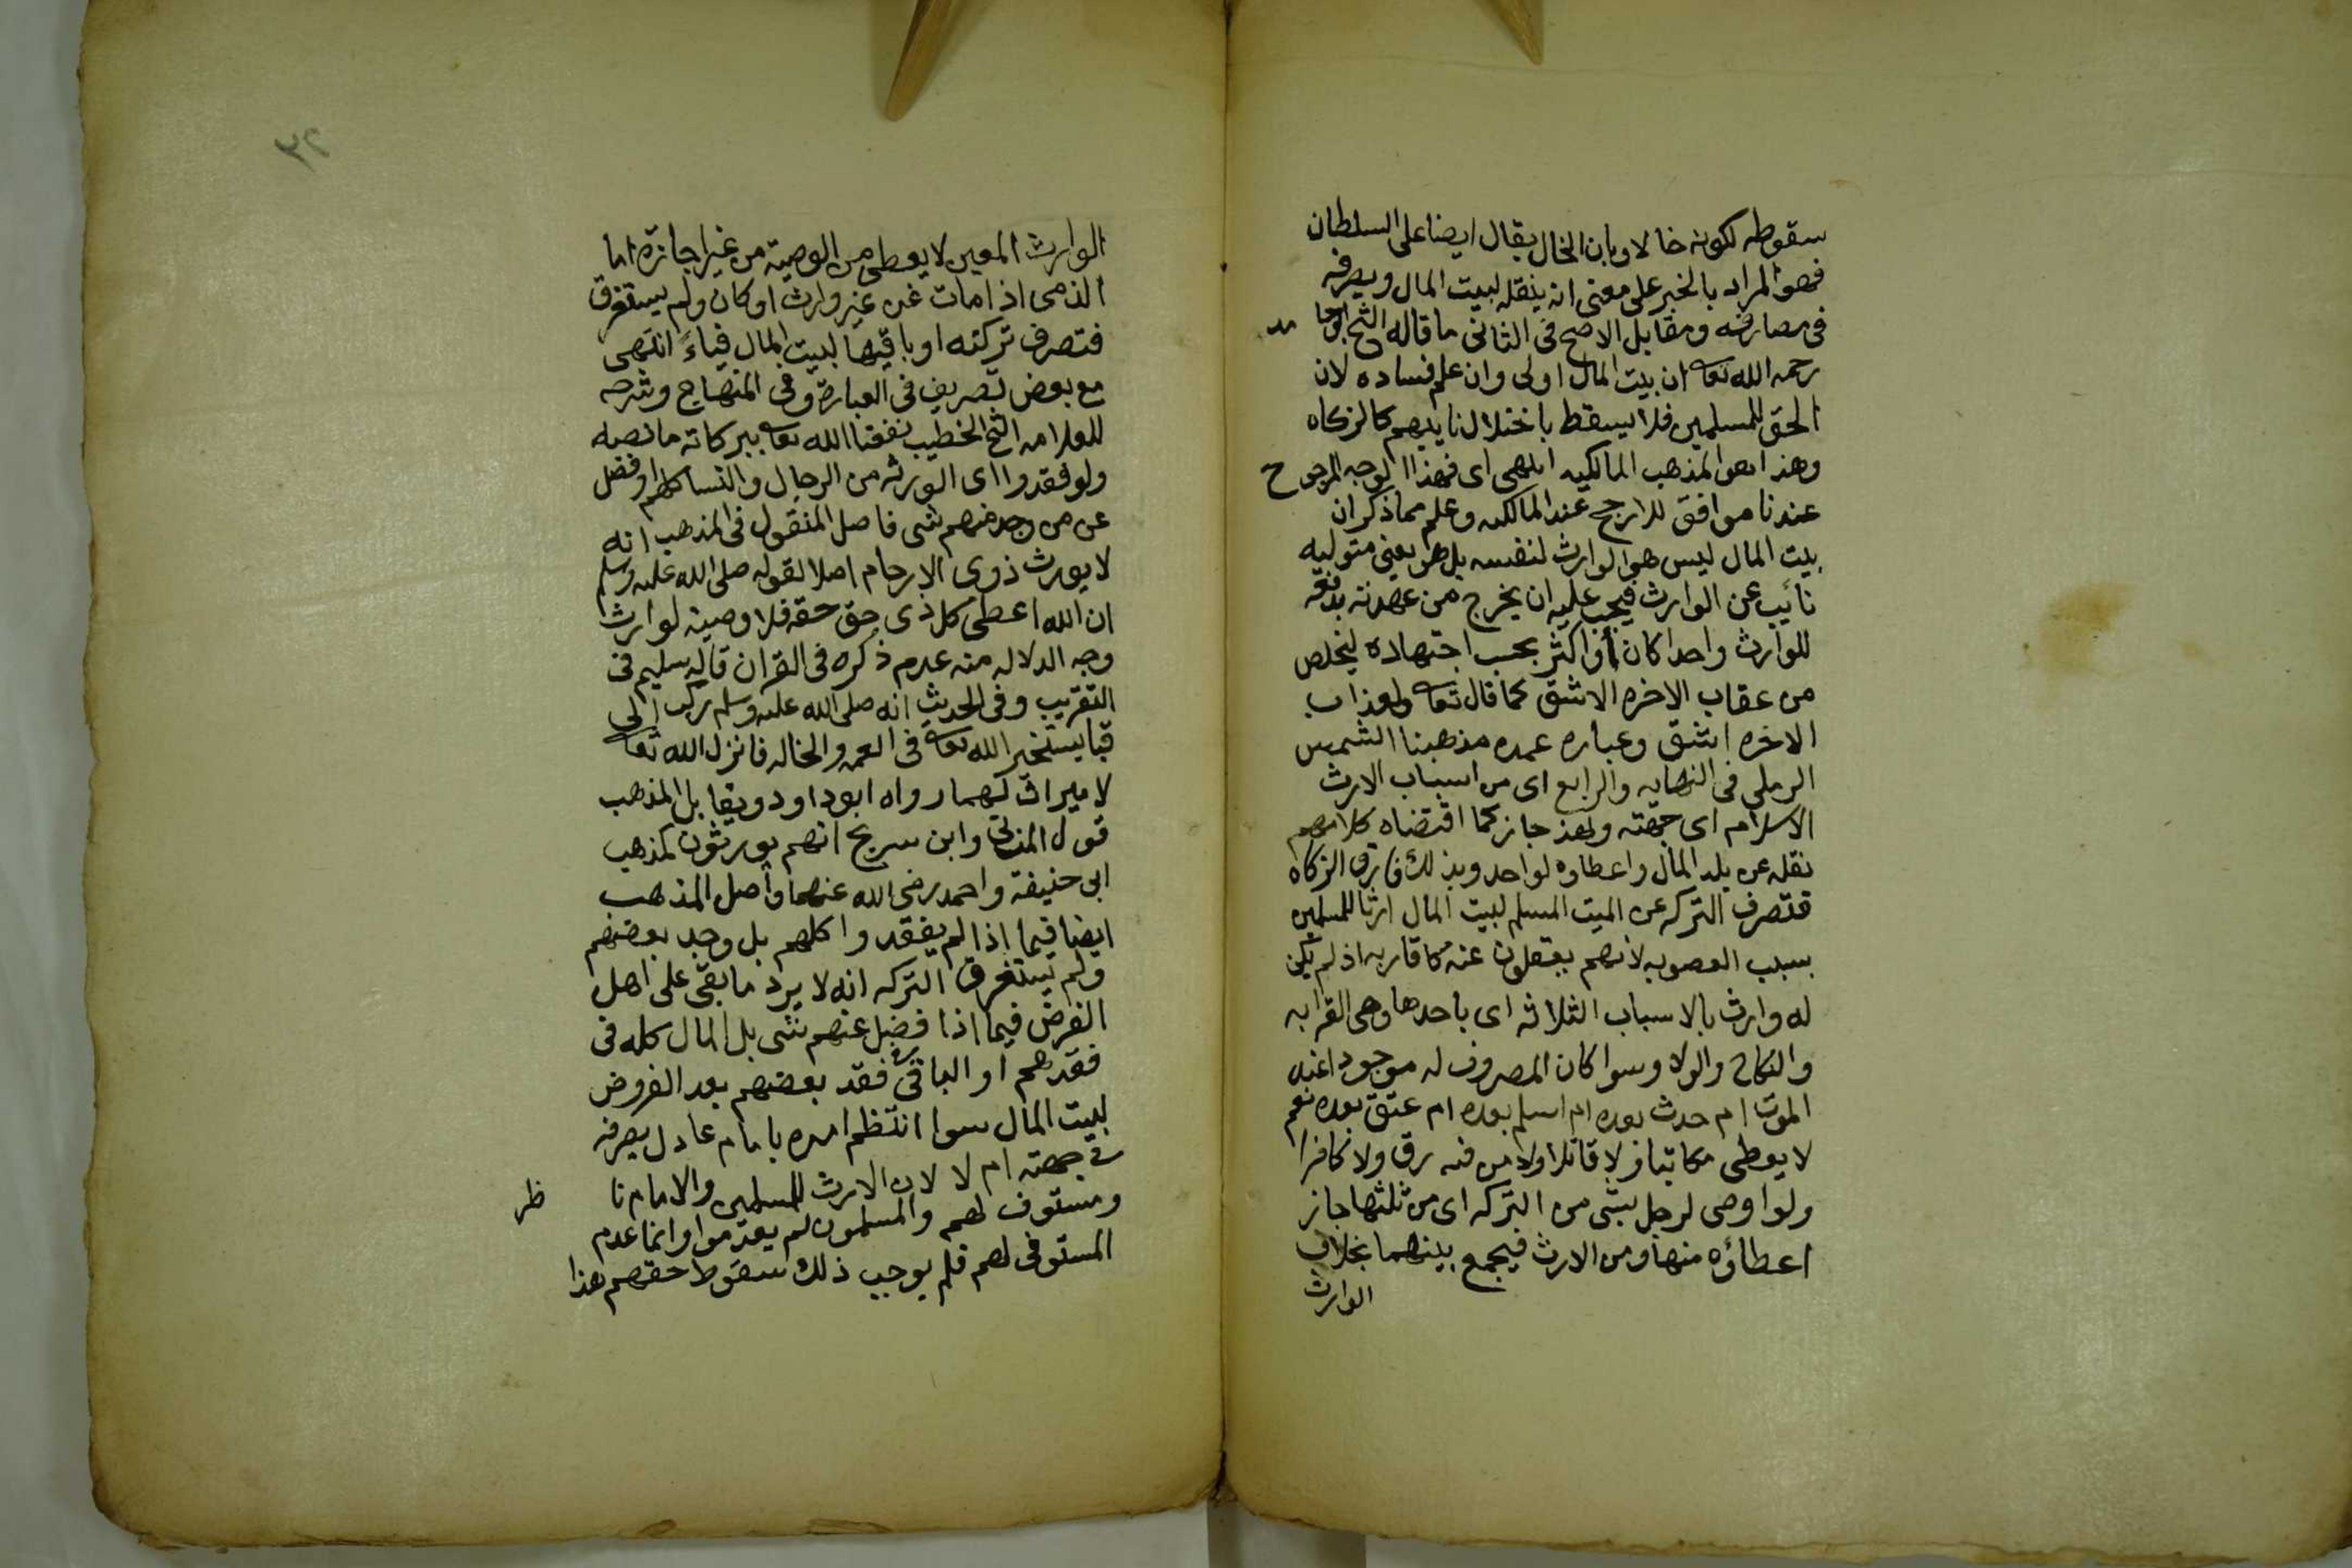 سقوطه لكونه خالا وبان الخال يقال ايضا على السلطان
فهو المراد بالخبر على معنى انه ينقله لبيت المال ويصرفه
فى مصارفه ومقابل الاصح فى الثانى ما قاله الشيخ ابو حامد
رحمه الله تعا ان بيت المال اولى وان علم فساده لان
الحق للمسلمين فلا يسقط باختلال نايبهم كالزكاه
وهذا هوا لمذهب المالكيه انتهى اى فهذا الوجه المرجوح
عندنا موافق للارجح عند المالكيه وعلم مما ذكر ان
بيت المال ليس هو الوارث لنفسه بل هو يعنى متوليه
نائب عن الوارث فيجب عليه ان يخرج من عهدته بدفعه
للوارث واحدا كان او اكثر بحسب اجتهاده ليخلص
من عقاب الاخره الاشق كما قال تعا ولعذاب
الاخره اشق وعباره عمده مذهبنا الشمس
الرملى فى النهايه والرابع اى من اسباب الارث
الاسلام اى جهته ولهذ جاز كما اقتضاه كلامهم
نقله عن بلد المال واعطاوه لواحد وبذلك فارق الزكاه
فتصرف التركه عن الميت المسلم لبيت المال ارثا للمسلمين
بسبب العصوبه لانهم يعقلون عنه كاقاربه اذ لم يكن
له وارث بالاسباب الثلاثه اى باحدها وهى القرابه
والنكاح والولا وسوا كان المصروف له موجودا عند
الموت ام حدث بعده ام اسلم بعده ام عتق بعده نعم
لا يعطى مكاتبا ولا قاتلا ولا من فيه رق ولا كافرا
ولو اوصى لرجل بشى من التركه اى من ثلثها جاز
اعطاؤه منها ومن الارث فيجمع بينهما بخلاف
الوارث
٣٢
الوارث المعين لا يعطى من الوصيه من غير اجازة اما
الذمى اذا مات عن غير وارث او كان ولم يستغرق
فتصرف تركته او باقيها لبيت المال فياءً انتهى
مع بعض تصريف فى العبارة وفى المنهاج وشرحه
للعلامه الشيخ الخطيب نفعنا الله تعا ببركاته ما نصه
ولو فقدوا اى الورثه من الرجال والنسا كلهم او فضل
عن من وجد منهم شى فاصل المنقول فى المذهب انه
لا يورث ذوى الارحام اصلا لقوله صلى الله عليه وسلم
ان الله اعطى كل ذى حق حقه فلا وصيه لوارث
وجه الدلاله منه عدم ذكره فى القران قاله سليم فى
التقريب وفى الحديث انه صلى الله عليه وسلم ركب الى
قبا يستخير الله تعا فى العمه والخاله فانزل الله تعا
لا ميراث لهما رواه ابو داود ويقابل المذهب
قول المزنى وابن سريج انهم يورثون كمذهب
ابى حنيفة واحمد رضى الله عنهما واصل المذهب
ايضا فيما اذا لم يفقدوا كلهم بل وجد بعضهم
ولم يستغرق التركه انه لا يرد ما بقى على اهل
الفرض فيما اذا فضل عنهم شى بل المال كله فى
فقدهم او الباقى فى فقد بعضهم بعد الفروض
لبيت المال سوا انتظم امره بامام عادل يصرفه
فى جهته ام لا لان الارث للمسلمين والامام ناظر
ومستوف لهم والمسلمون لم يعدموا وانما عدم
المستوفى لهم فلم يوجب ذلك سقوط حقهم هذا